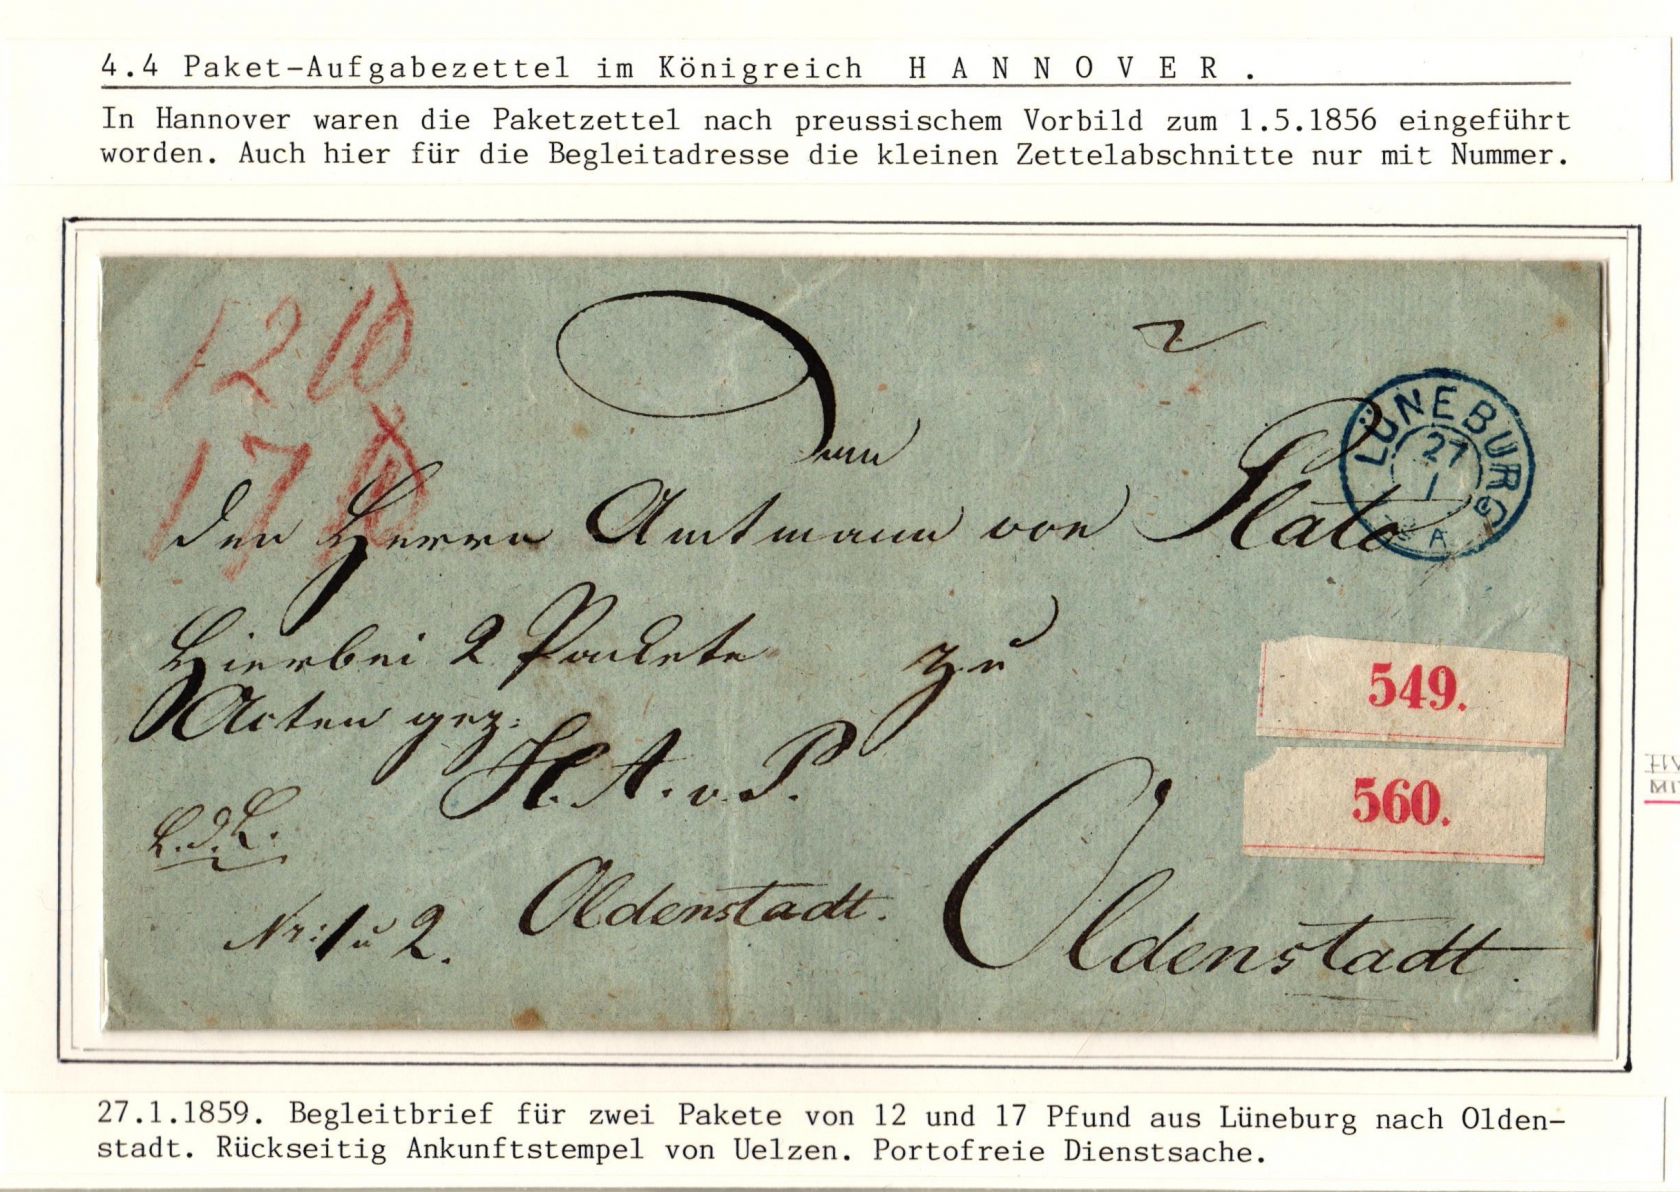 4.4 Paket-Aufgabezettel im Königreich H A N N O V E R .
In Hannover waren die Paketzettel nach preussischem Vorbild zum 1.5.1856 eingeführt
worden. Auch hier für die Begleitadresse die kleinen Zettelabschnitte nur mit Nummer.
12 ℔
17 ℔
Dem
den Herrn Amtmann von Plato
LÜNEBURG
27
1
A
Hierbei 2 Packete
zu
Acten gez:
H. A. v. P.
549.
560.
Nr: 1 u 2.
Oldenstadt.
Oldenstadt.
27.1.1859. Begleitbrief für zwei Pakete von 12 und 17 Pfund aus Lüneburg nach Olden-
stadt. Rückseitig Ankunftstempel von Uelzen. Portofreie Dienstsache.